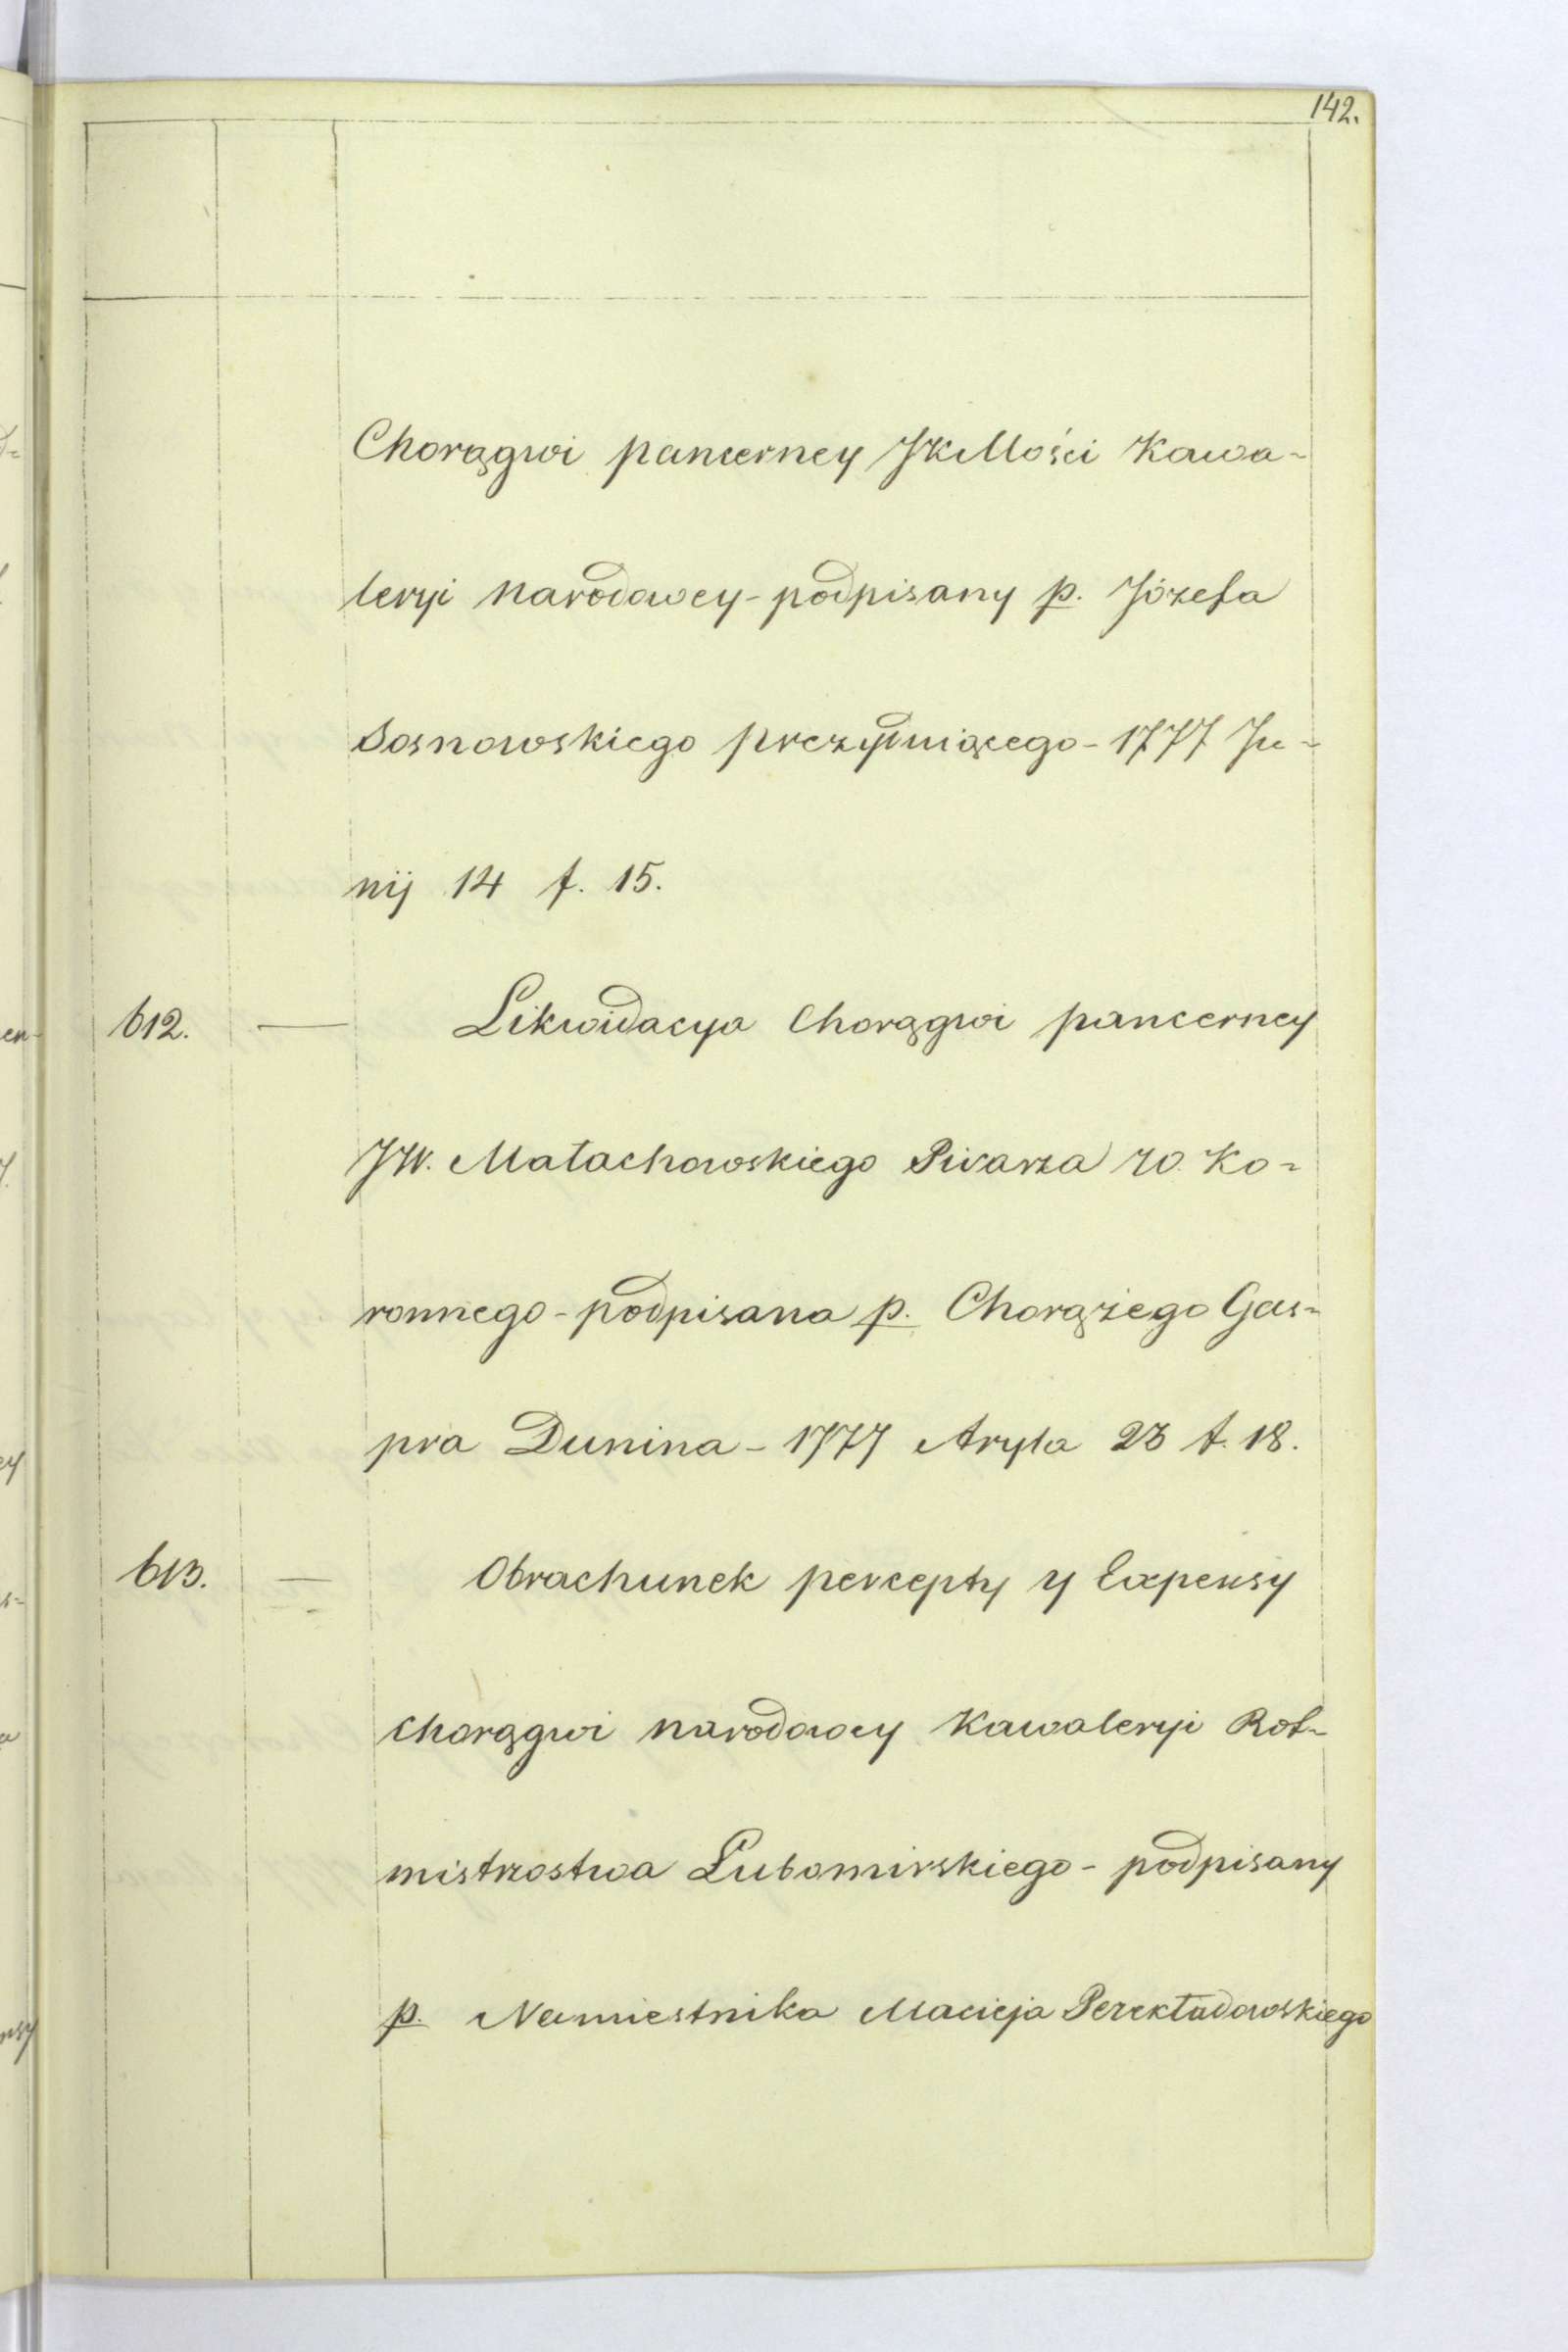 142.
Chorągwi pancerney JKMości Kawa-
leryi narodowey - podpisany p. Józefa
Sosnowskiego prezyduiącego - 1777 Ju-
nij 14 f. 15.
612. — Likwidacya Chorągwi pancerney
JW. Małachowskiego Pisarza W. Ko-
ronnego - podpisana p. Chorążego Gas-
pra Dunina - 1777 Aryla 23 f. 18.
613. — Obrachunek percepty y Expensy
chorągwi narodowey Kawaleryi Rot-
mistrzostwa Lubomirskiego - podpisany
p. Namiestnika Macieja Perekładowskiego